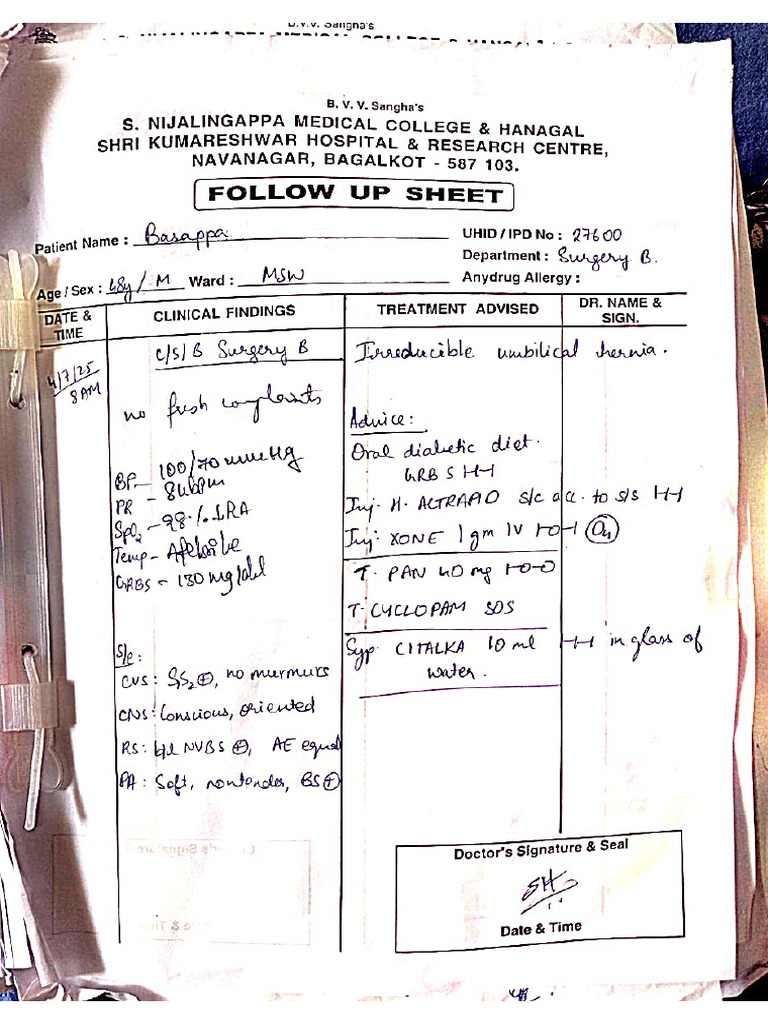 B.V.V. Sangha's
B. V. V. Sangha's
S. NIJALINGAPPA MEDICAL COLLEGE & HANAGAL
SHRI KUMARESHWAR HOSPITAL & RESEARCH CENTRE,
NAVANAGAR, BAGALKOT - 587 103.
FOLLOW UP SHEET
Patient Name : Basappa UHID / IPD No : 27600
Department : Surgery B.
Age / Sex : 48y / M Ward : MSW Anydrug Allergy :
DATE & TIME CLINICAL FINDINGS TREATMENT ADVISED DR. NAME & SIGN.
4/7/25
8AM
C/S/B Surgery B
no fresh complaints
BP - 100/70 mmHg
PR - 84bpm
SpO2 - 98 % @RA
Temp - Afebrile
GRBS - 130 mg/dl
S/e:
CVS : S1S2 ⊕, no murmurs
CNS : Conscious, oriented
RS : b/l NVBS ⊕, AE equal
PA : Soft, nontender, BS ⊕
Irreducible umbilical hernia.
Advice :
Oral diabetic diet.
GRBS 1-1-1
Inj. H. ACTRAPID s/c acc. to s/s 1-1-1
Inj. XONE 1gm IV 1-0-1
T. PAN 40 mg 1-0-0
T. CYCLOPAM SOS
Syp CITALKA 10 ml 1-1-1 in glass of
water.
Doctor's Signature & Seal
SH
Date & Time